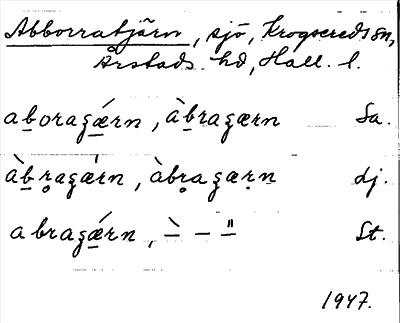 Abborratjärn, sjö, Krogsereds sn,
Årstads hd, Hall. l.
ab̲oraʒǽ̲rn, àb̲raʒærn Sa.
àb̲r̥aʒǽrn, àbr̥aʒæṛṇ dj.
abraʒǽ̲rn, ̀— – ̎— St.
1947.